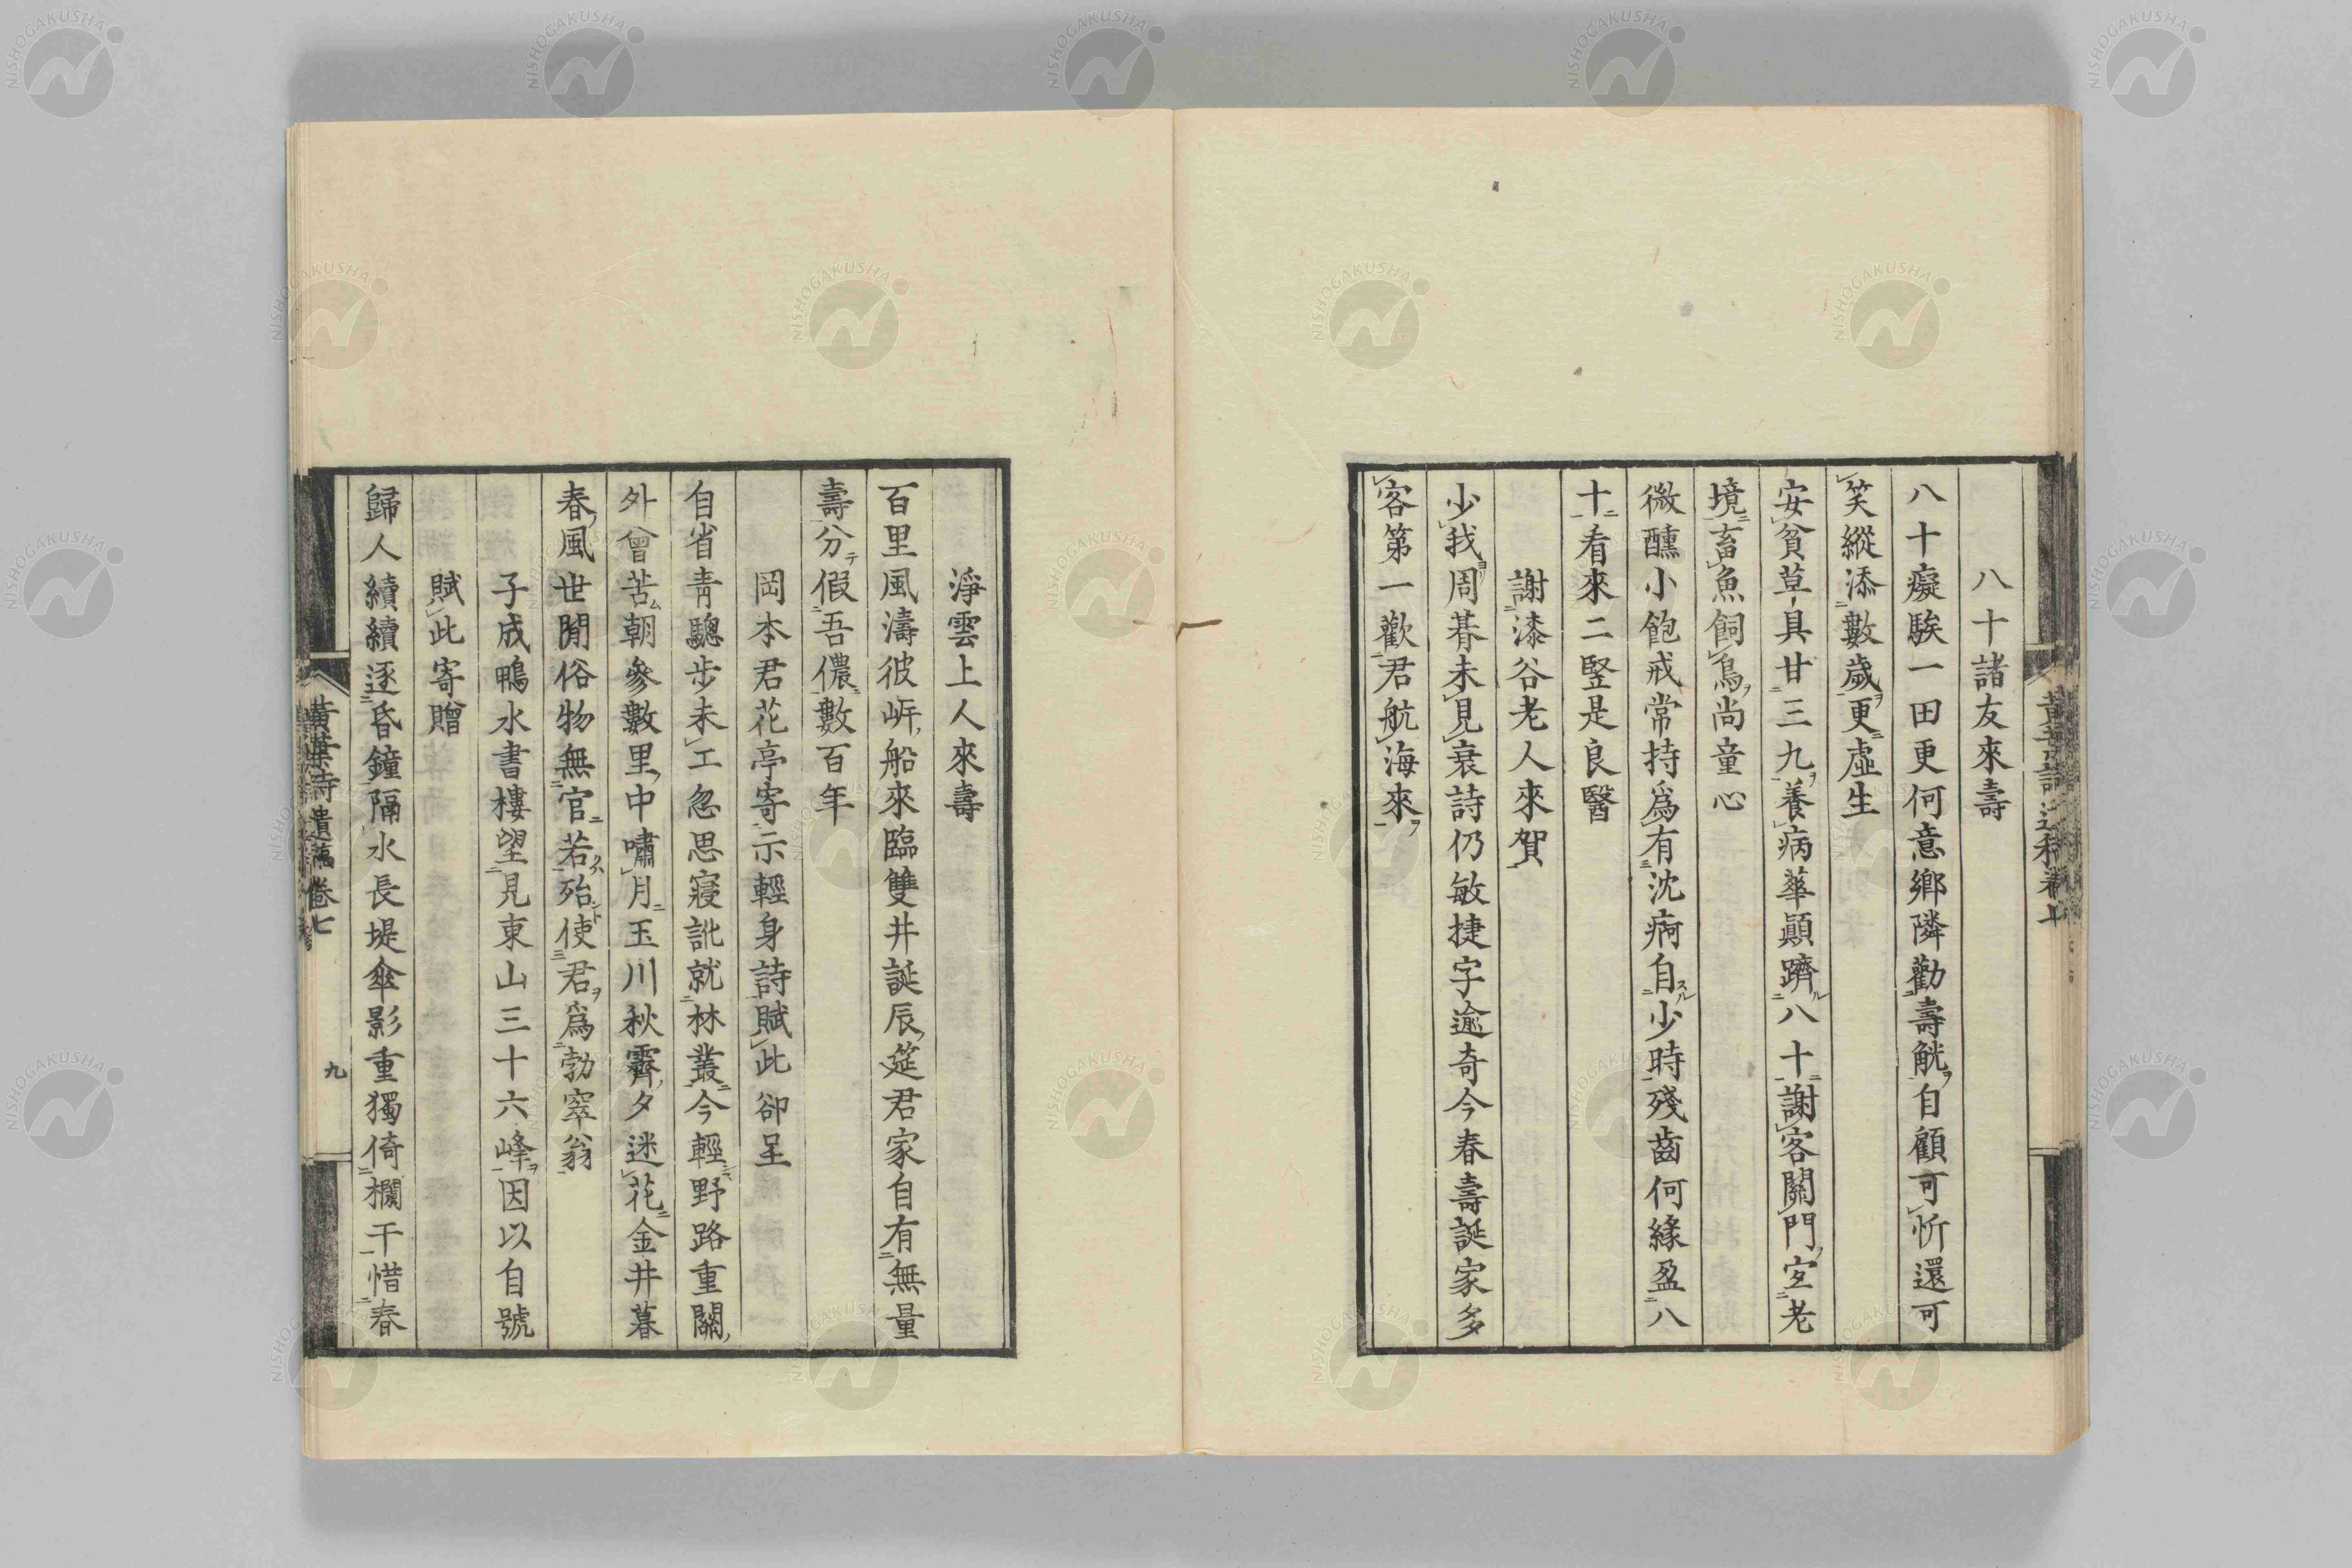 八十諸友來壽
八十癡騃一田更何意鄉隣勸壽觥自顧可忻還可
笑縱添數歲更虛生
安貧草具甘三九養病華顚躋八十謝客關門定老
境畜魚飼鳥尚童心
微醺小飽戒常持爲有沈痾自少時殘齒何緣盈八
十看來二竪是良醫
謝漆谷老人來賀
少我周朞未見衰詩仍敏捷字逾奇今春壽誕家多
客第一歡君航海來
淨雲上人來壽
百里風濤彼岍船來臨雙井誕辰筵君家自有無量
壽分假吾儂數百年
岡本君花亭寄示輕身詩賦此卻呈
自省靑驄步未工忽思寢訛就林叢今輕野路重關
外曾苦朝參數里中嘯月玉川秋霽夕迷花金井暮
春風世閒俗物無官若殆使君爲勃窣翁
子成鴨水書樓望見東山三十六峰因以自號
賦此寄贈
歸人續續逐昏鐘隔水長堤傘影重獨倚欄干惜春
黃葉詩遺稿卷七
九
NISHOGAKUSHA